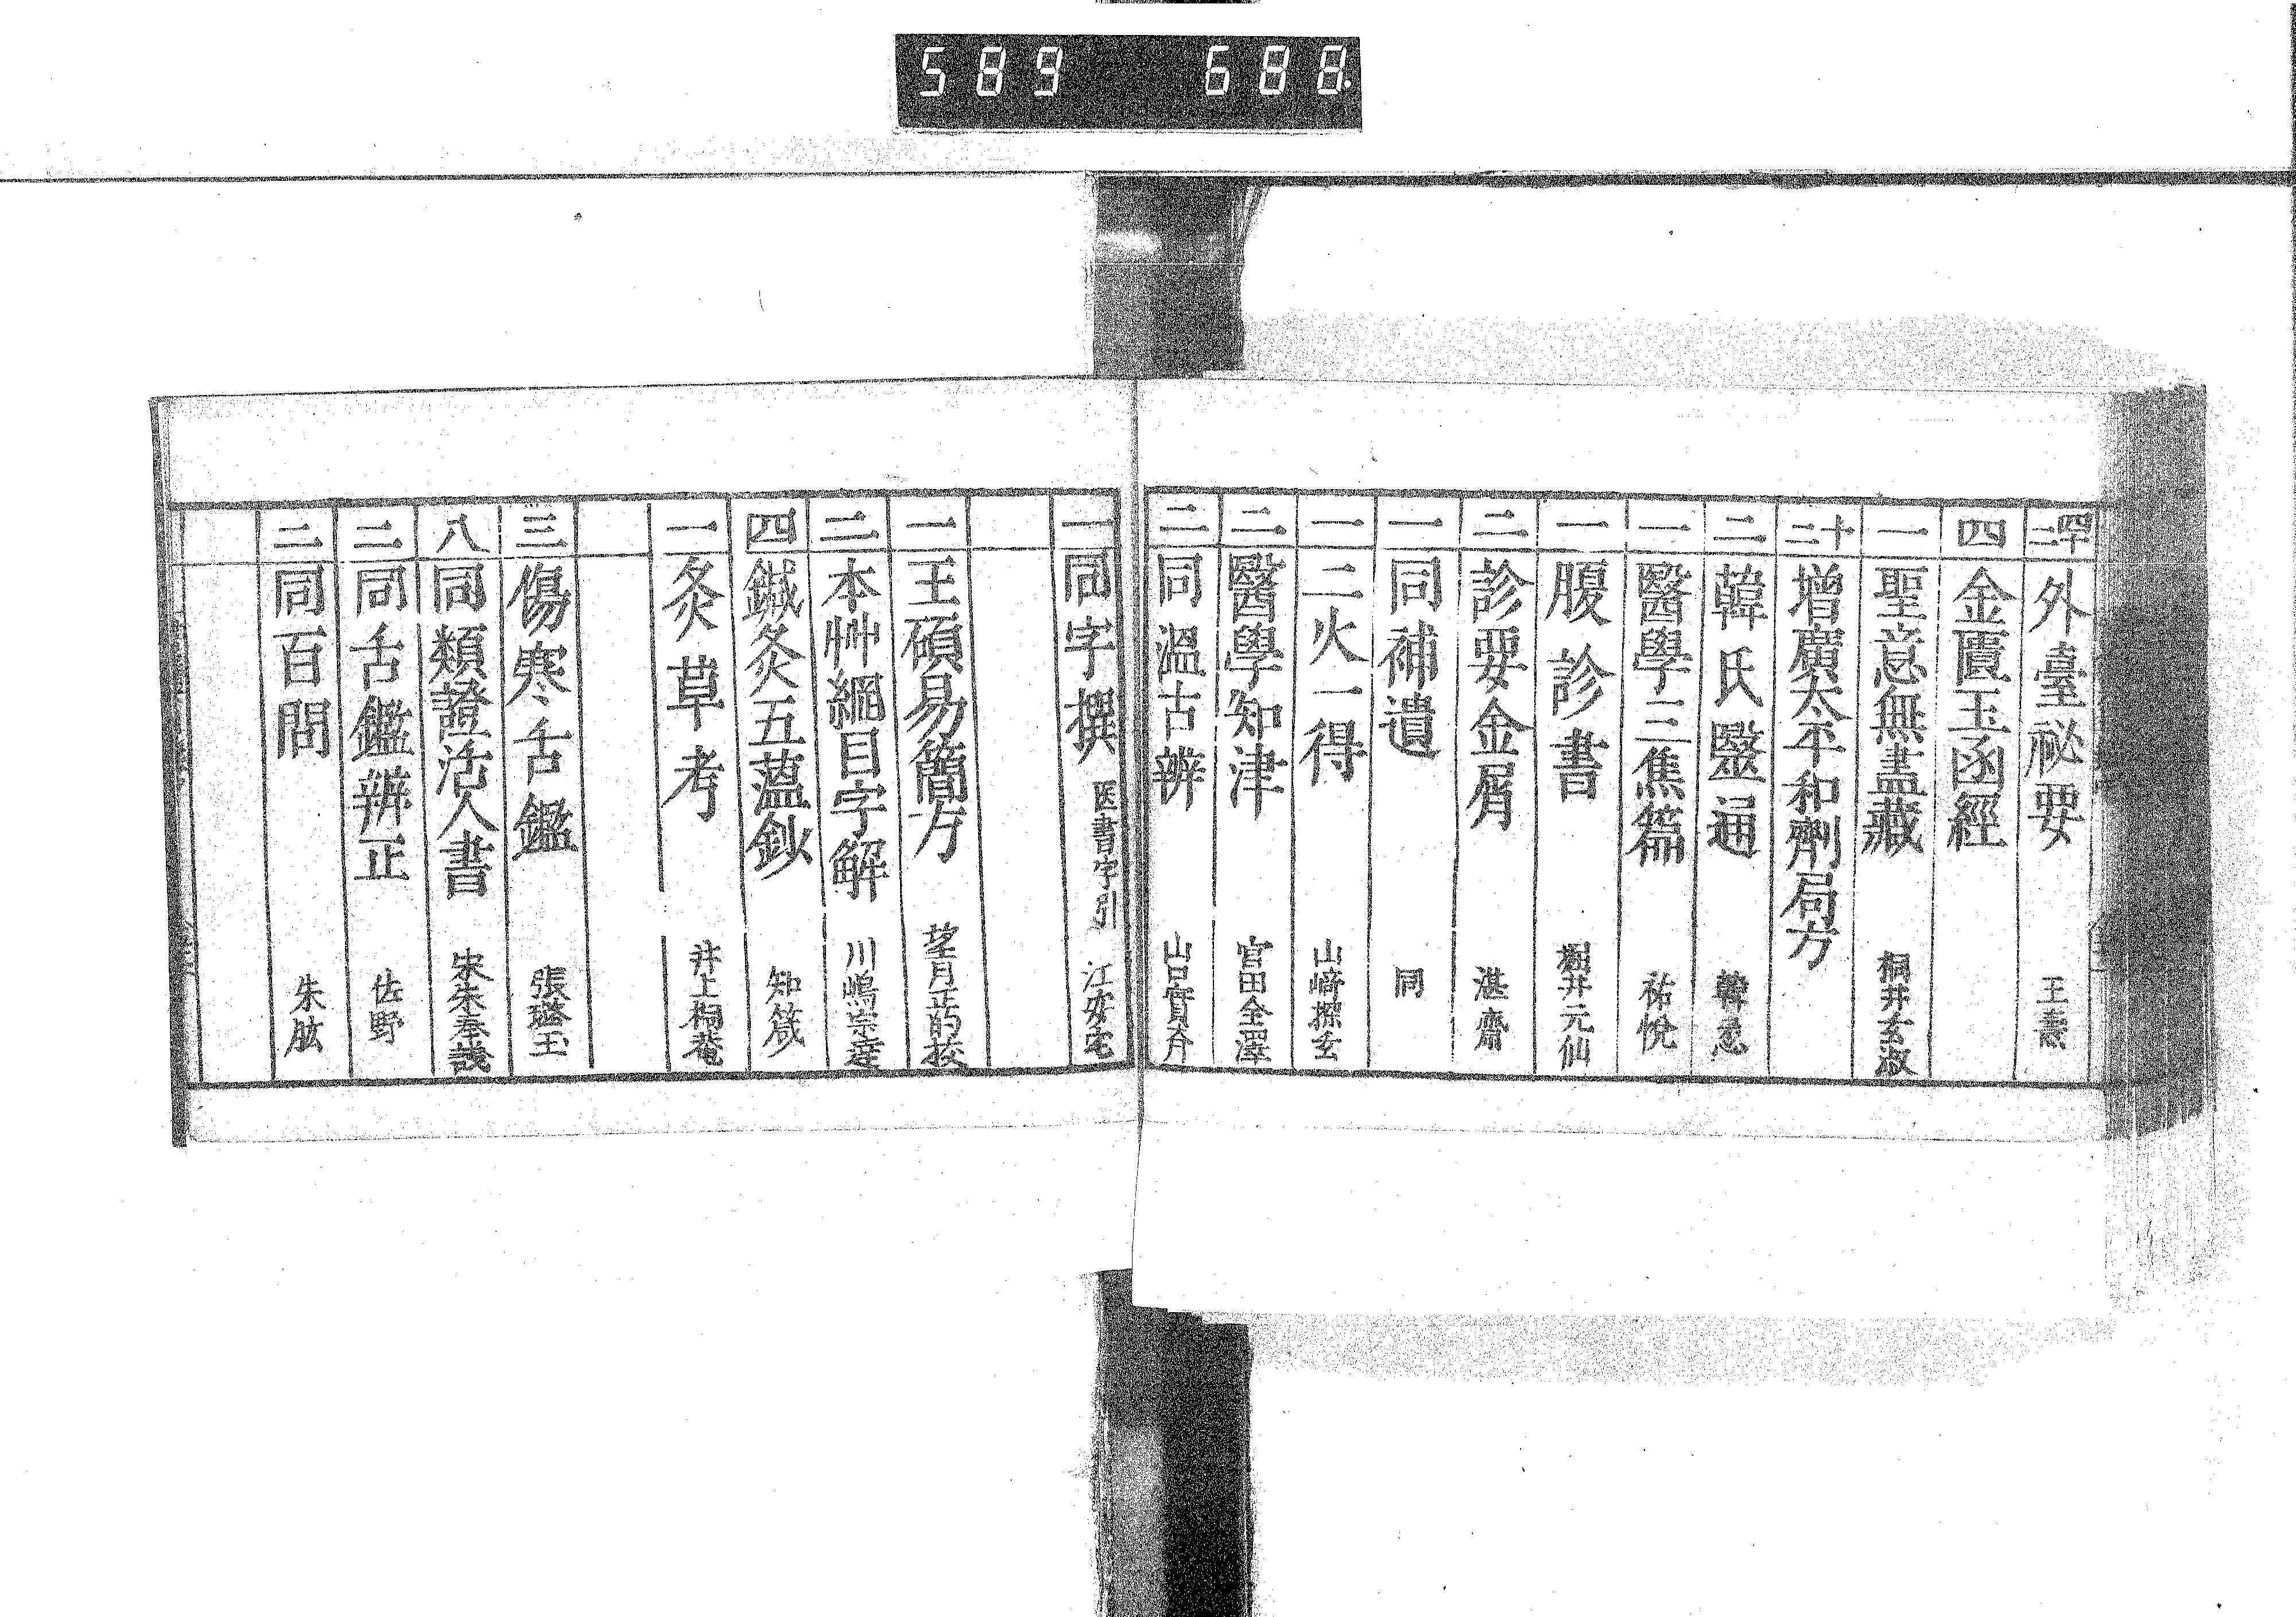 589 688
四十二 外臺祕要 王燾
四 金匱玉函經
一 聖意無盡藏 桐井玄淑
十二 增廣太平和劑局方
二 韓氏醫通 韓𢚩
一 醫學三焦篇 祐悅
一 腹診書 井元仙
二 診要金屑 湛齋
一 同補遺 同
一 二火一得 山崎玄
二 醫學知津 官田全澤
二 同溫古辨 山口實齐
一 同字撰 医書字引 江安宅
一 王碩易簡方 望月正的挍
二 本艸綱目字解 川嶋宗達
四 鍼灸五蘊鈔 知箴
一 灸草考 井上桐菴
三 傷寒舌鑑 張璐玉
八 同類證活人書 宋朱奉議
二 同舌鑑辨正 佐野
二 同百問 朱肱